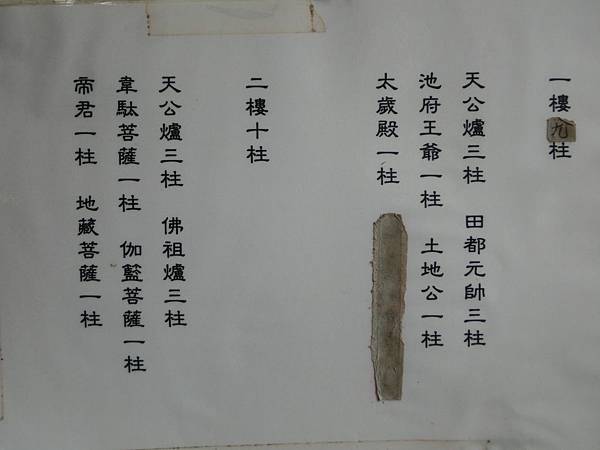 一樓九柱
天公爐三柱 田都元帥三柱
池府王爺一柱 土地公一柱
太歲殿一柱
二樓十柱
天公爐三柱 佛祖爐三柱
韋馱菩薩一柱 伽藍菩薩一柱
帝君一柱 地藏菩薩一柱